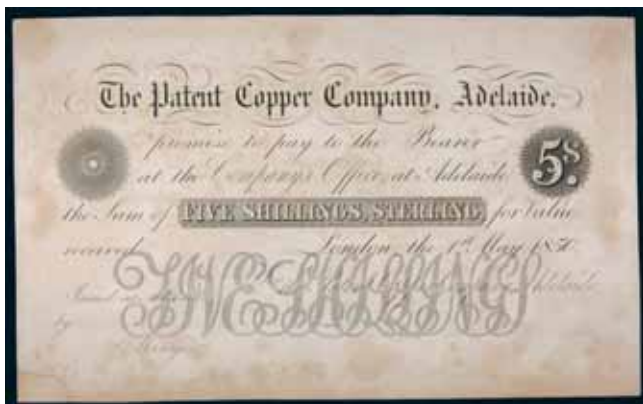 The Patent Copper Company, Adelaide.
promise to pay to the Bearer
at the Company's Office, at Adelaide
5s.
the Sum of FIVE SHILLINGS, STERLING, for Value
received London, the 1st May, 1850.
FIVE SHILLINGS
Adelaide
by